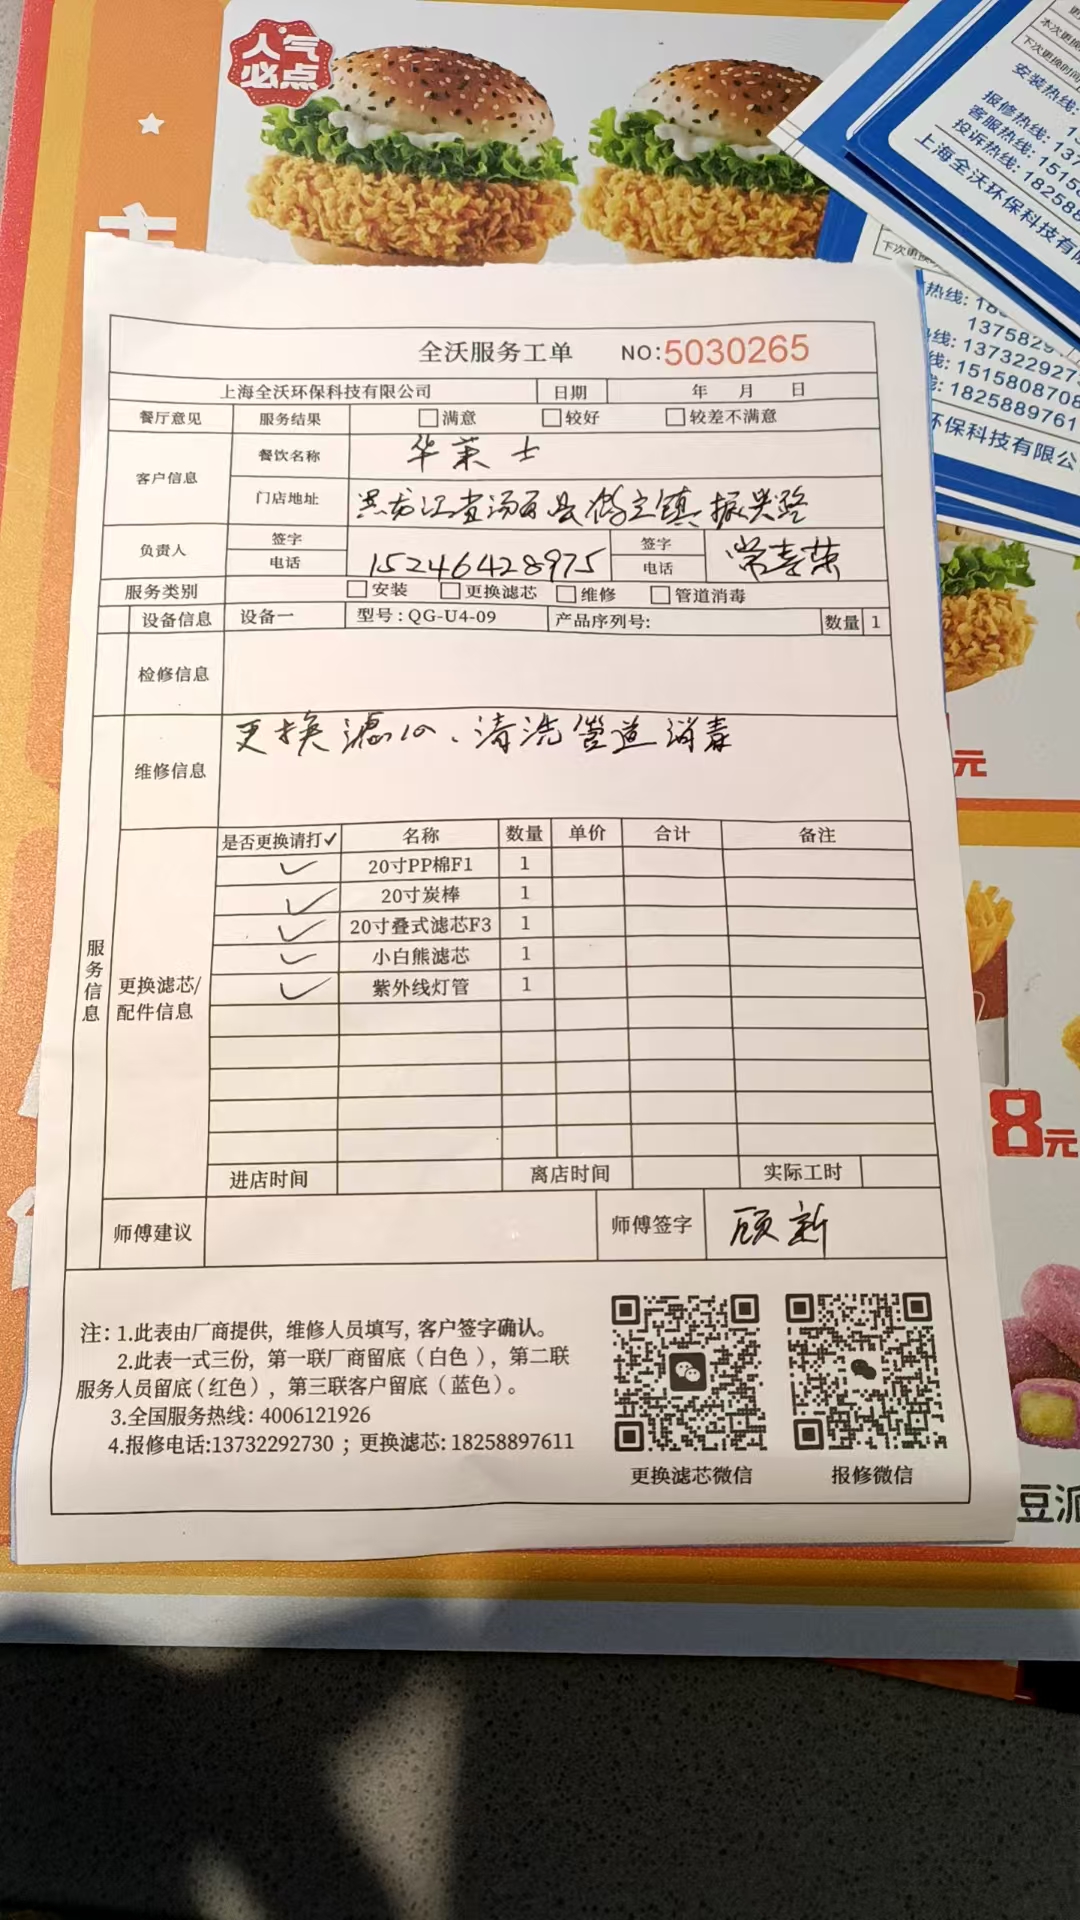 人气
必点
本次更换
下次更换时间
安装热线:
报修热线: 137
客服热线:
投诉热线: 1515
18258
上海全沃环保科技有限
下次更换
热线: 18
1375829
线: 137322927
线: 1515808708
: 1825889761
环保科技有限公
全沃服务工单 NO:5030265
上海全沃环保科技有限公司 日期 年 月 日
餐厅意见 服务结果 满意 较好 较差不满意
客户信息 餐饮名称 华莱士
门店地址 黑龙江省汤原县鹤立镇振兴路
负责人 签字 签字
电话 15246428975 电话 常喜荣
服务类别 安装 更换滤芯 维修 管道消毒
设备信息 设备一 型号:QG-U4-09 产品序列号: 数量 1
检修信息
维修信息 更换滤心、清洗管道消毒
服务信息
更换滤芯/
配件信息
是否更换请打✓ 名称 数量 单价 合计 备注
✓ 20寸PP棉F1 1
✓ 20寸炭棒 1
✓ 20寸叠式滤芯F3 1
✓ 小白熊滤芯 1
✓ 紫外线灯管 1
进店时间 离店时间 实际工时
师傅建议 师傅签字 顾新
注: 1.此表由厂商提供, 维修人员填写, 客户签字确认。
2.此表一式三份, 第一联厂商留底(白色), 第二联
服务人员留底(红色), 第三联客户留底(蓝色)。
3.全国服务热线: 4006121926
4.报修电话:13732292730 ; 更换滤芯: 18258897611
更换滤芯微信 报修微信
元
8元
豆派